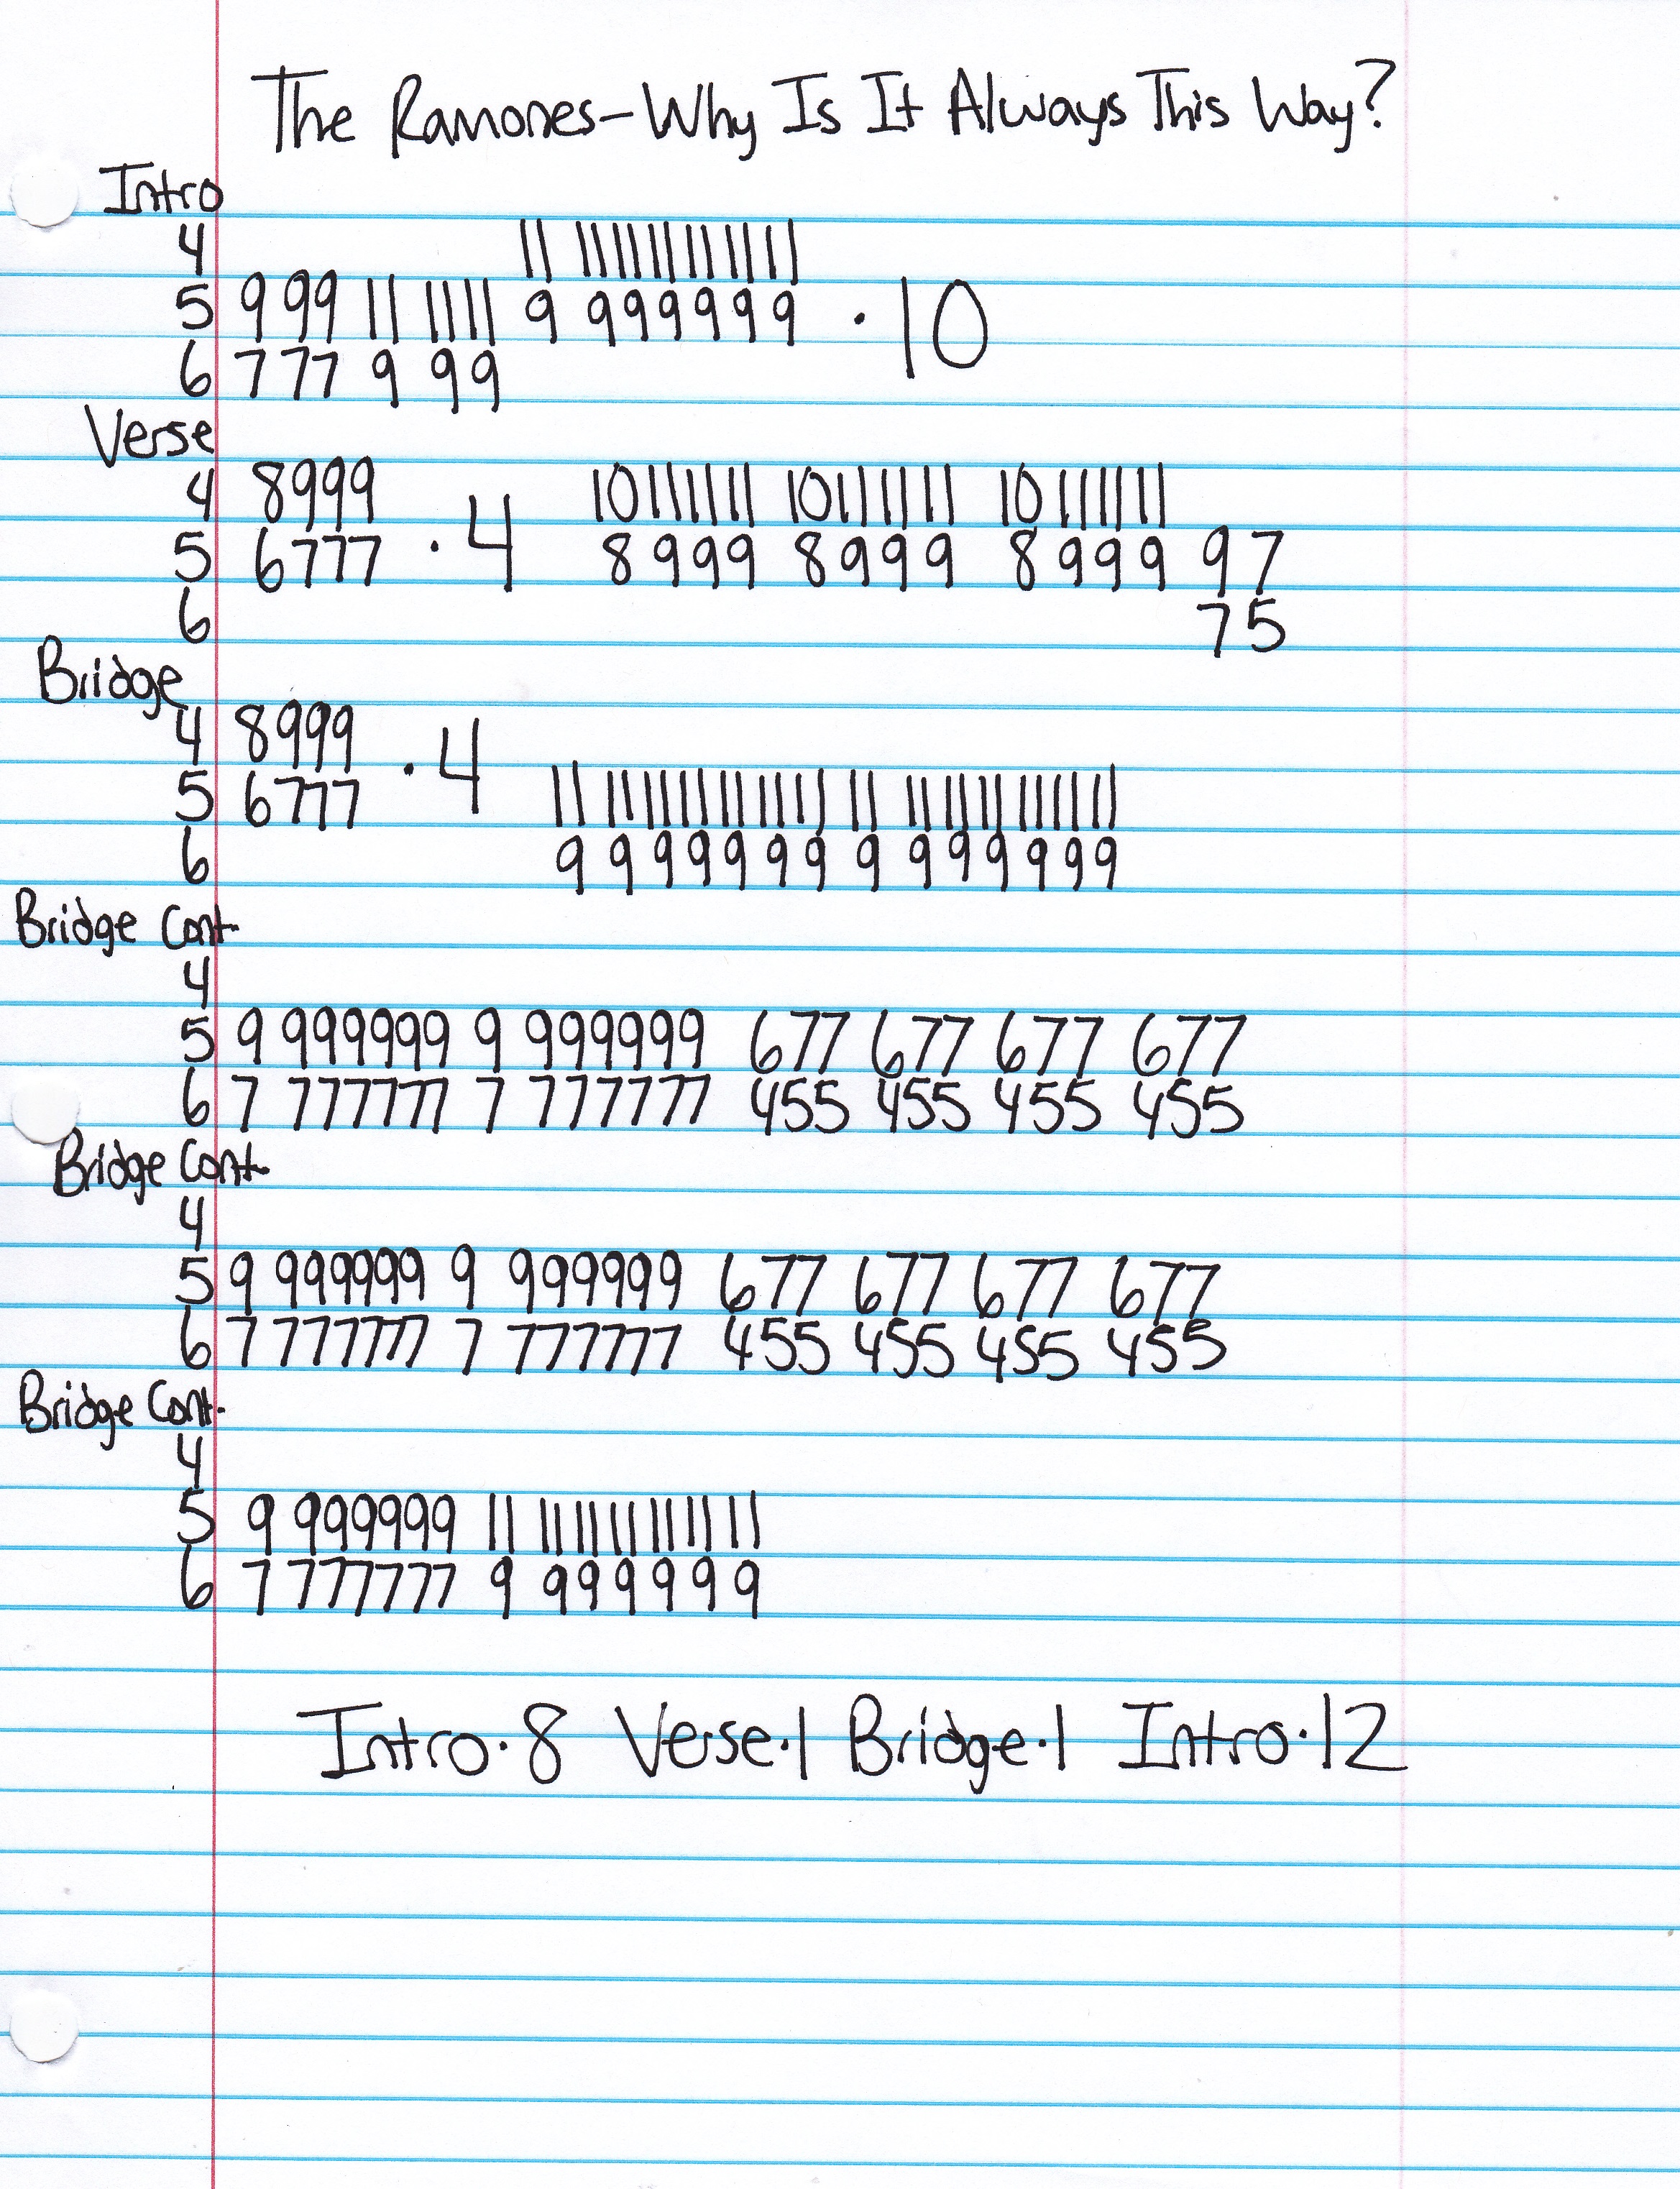 The Ramones-Why Is It Always This Way?
Intro
4 11 111111111111
5 9 99 11 1111 9 999999 · 10
6 7 77 9 99
Verse
4 8999 10111111 10111111 10111111
5 6777 · 4 8999 8999 8999 97
6 75
Bridge
4 8999 · 4
5 6777 11 111111111111 11 111111111111
6 9 999999 9 999999
Bridge Cont.
4
5 9 999999 9 999999 677 677 677 677
6 7 777777 7 777777 455 455 455 455
Bridge Cont.
4
5 9 999999 9 999999 677 677 677 677
6 7 777777 7 777777 455 455 455 455
Bridge Cont.
4
5 9 999999 11 111111111111
6 7 777777 9 999999
Intro·8 Verse·1 Bridge·1 Intro·12